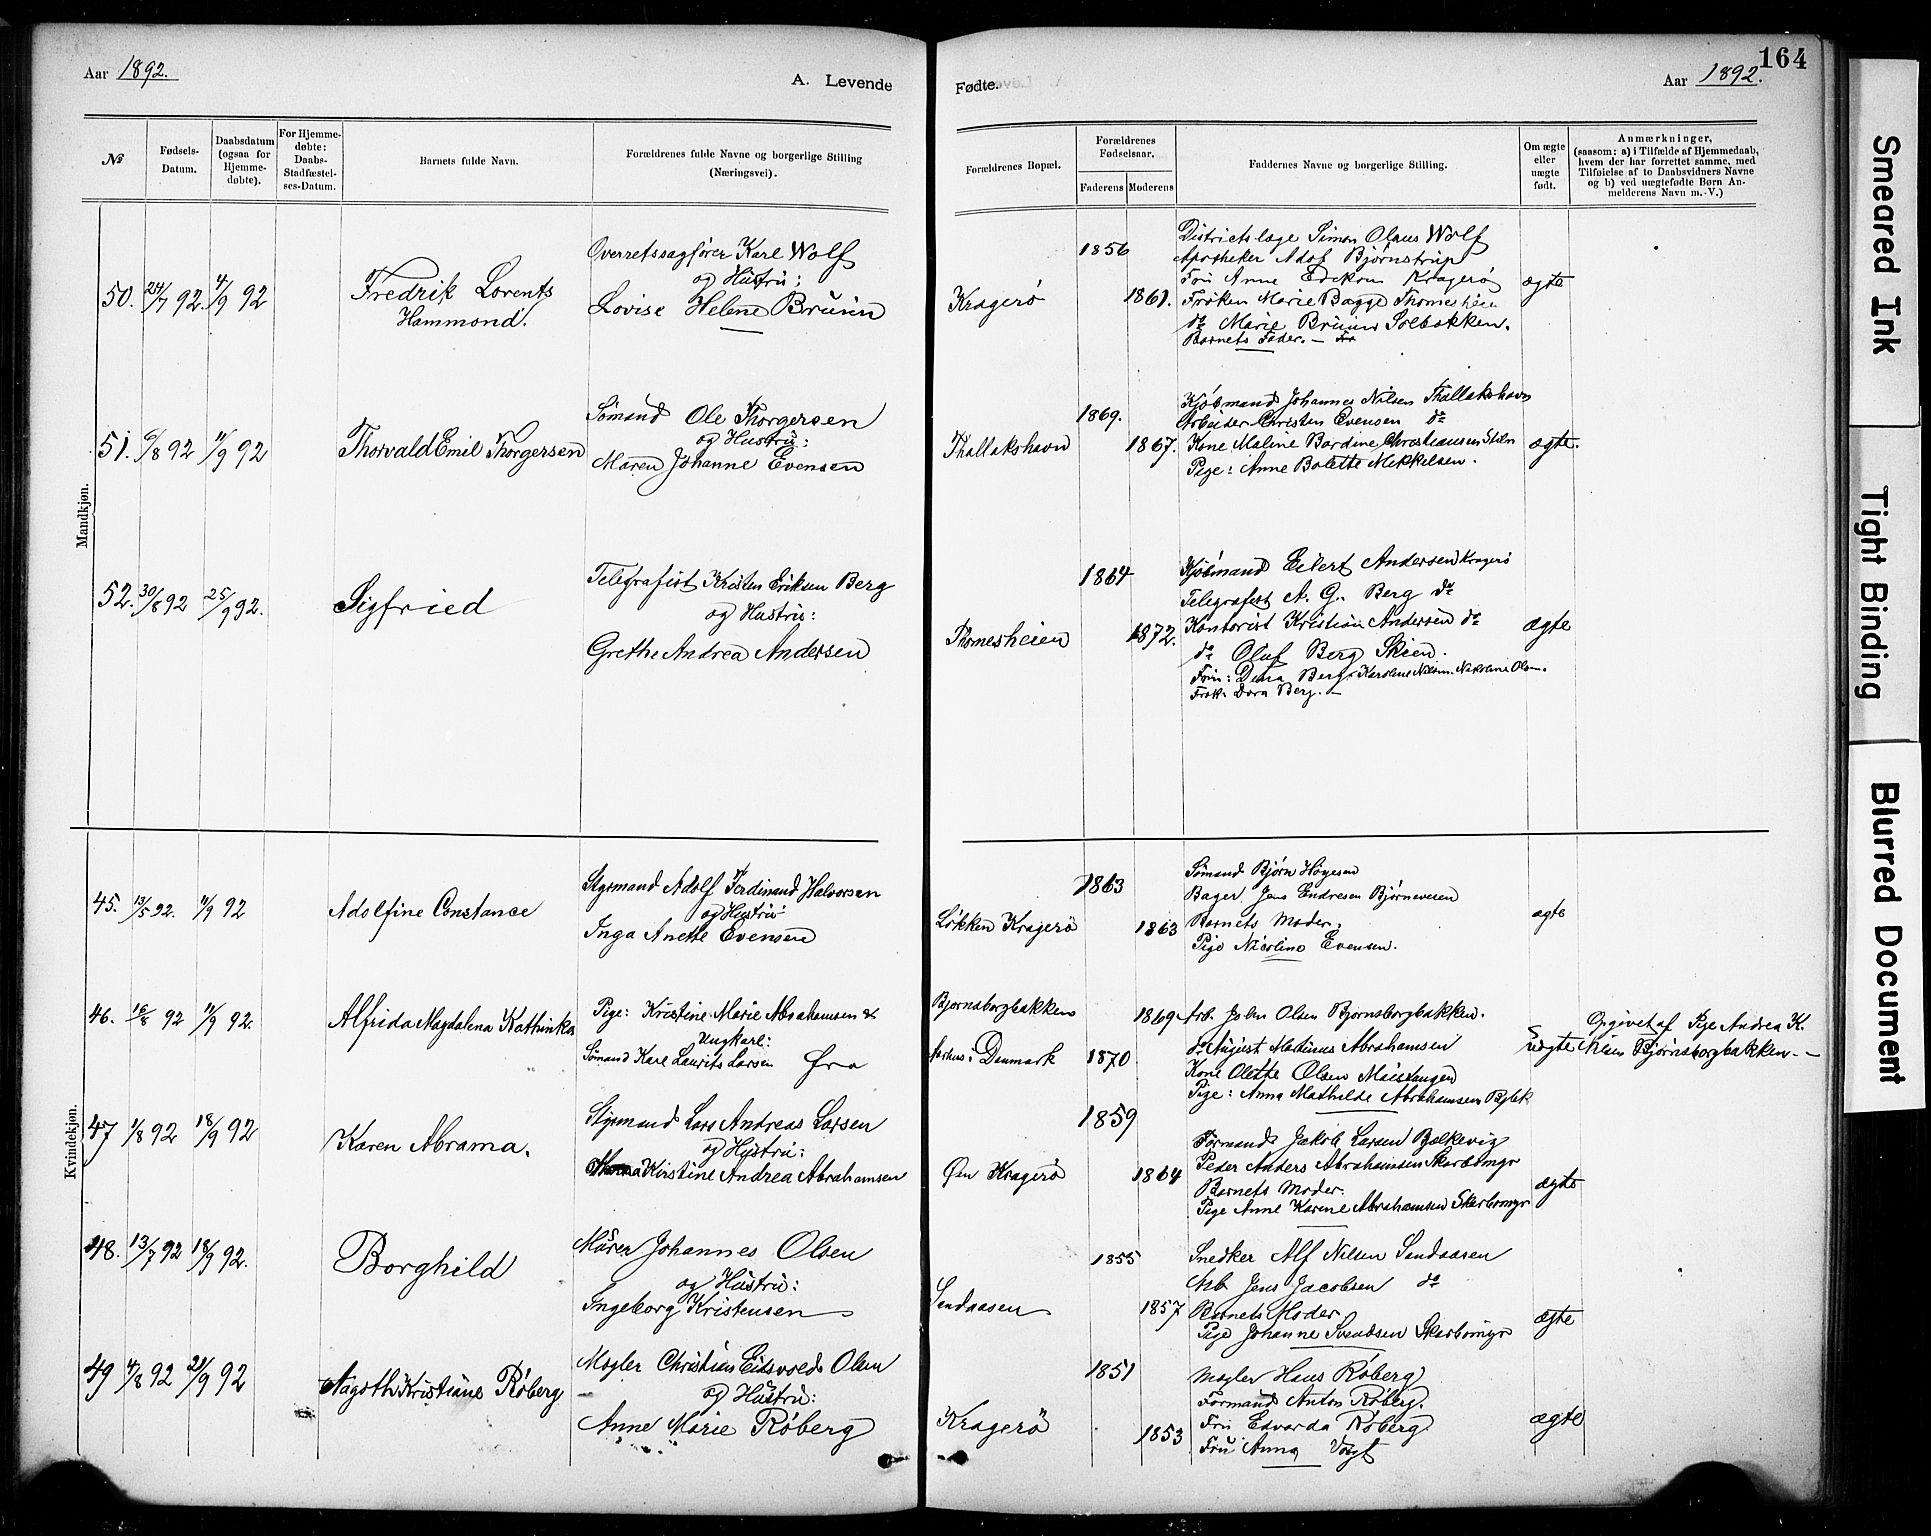 164
Aar 1892.
A. Levende
Fødte.
Aar 1892.
№
Fødsels-
Datum.
Daabsdatum
(ogsaa for
Hjemme-
døbte).
For Hjemme-
døbte:
Daabs-
Stadfæstel-
ses-Datum.
Barnets fulde Navn.
Forældrenes fulde Navne og borgerlige Stilling
(Næringsvei).
Forældrenes Bopæl.
Forældrenes
Fødselsaar.
Faderens
Moderens
Faddernes Navne og borgerlige Stilling.
Om ægte
eller
uægte
født.
Anmærkninger,
(saasom: a) i Tilfælde af Hjemmedaab,
hvem der har forrettet samme, med
Tilføielse af to Daabsvidners Navne
og b) ved uægtefødte Børn An-
melderens Navn m. V.)
Mandkjøn.
50. 24/7 92. 4/9 92
Fredrik Lorents
Hammond.
Overretssagfører Karl Wolf
og Hustru:
Lovise Helene Bruun
Kragerø
1856
1861.
Districtslæge Simon Olaus Wolf
Apotheker Adof Bjørnstrup
Fru Anne Kragerø
Frøken Marie Bagge Thomesheien
do Marie Bruun Solbakken.
Barnets Fader. —
ægte
51. 6/8 92 11/9 92
Thorvald Emil Thorgersen
Sømand Ole Thorgersen
og Hustru:
Maren Johanne Evensen
Thallakshavn
1869.
1867.
Kjøbmand Johannes Nilsen Thallakshavn
Arbeider Christen Evensen do
Kone Maline Bardine Christiansen
Pige: Anne Bolette Mikkelsen.
ægte.
52. 30/8 92 25/9 92.
Sigfried
Telegrafist Kristen Eriksen Berg
og Hustru:
Grethe Andrea Andersen
Thomesheien
1864
1872.
Kjøbmand Eilert Andersen Kragerø
Telegrafist A. G. Berg do
Kontorist Kristian Andersen do
do Oluf Berg Skien.
Fru: Dina Berg. Karoline Nilsen. Olsen.
Frøk. Dora Berg. —
ægte
Kvindekjøn.
45. 13/5 92. 11/9 92
Adolfine Constance
Styrmand Adolf Ferdinand Halvorsen
og Hustru
Inga Anette Evensen
Løkken Kragerø
1863
1863
Sømand Bjørn Høyesen
Bager Jens Endresen Bjørneveien
Barnets Moder.
Pige Nicoline Evensen.
ægte
46. 16/8 92 11/9 92.
Alfrida Magdalena Kathinka
Pige: Kristine Marie Abrahamsen &
Ungkarl:
Sømand Karl Laurits Larsen fra
Bjørnsborgbakken
Aarhus i Danmark
1870
1869
Arb. John Olsen Bjørnsborgbakken.
do August Mathinus Abrahamsen
Kone Olette Olsen Maistangen
Pige: Anna Mathilde Abrahamsen
uægte
Opgivet af Pige Andrea K.
Nilsen Bjørnsborgbakken. —
47 1/8 92 18/9 92
Karen Abrama.
Styrmand Lars Andreas Larsen
og Hustru:
Kirstine Andrea Abrahamsen
Øen Kragerø
1859
1864
Formand Jakob Larsen Bælkevig
Peder Anders Abrahamsen Skarbomyr
Barnets Moder.
Pige Anne Karine Abrahamsen Skarbomyr
ægte
48. 13/7 92 18/9 92.
Borghild
Murer Johannes Olsen
og Hustru:
Ingeborg Kristensen
Sendaasen
1855
1857
Snedker Alf Nilsen Sendaasen
Arb Jens Jacobsen do
Barnets Moder
Pige Johanne Svendsen Skarbomyr
ægte
49 4/8 92 21/9 92
Aagoth Kristiane Røberg
Mægler Christian Eidsvold Olsen
og Hustru:
Anne Marie Røberg
Kragerø
1851
1853
Mægler Hans Røberg
Formand Anton Røberg.
Fru Edvarda Røberg
Fru Anna Voigt
ægte
Smeared Ink
Tight Binding
Blurred Document